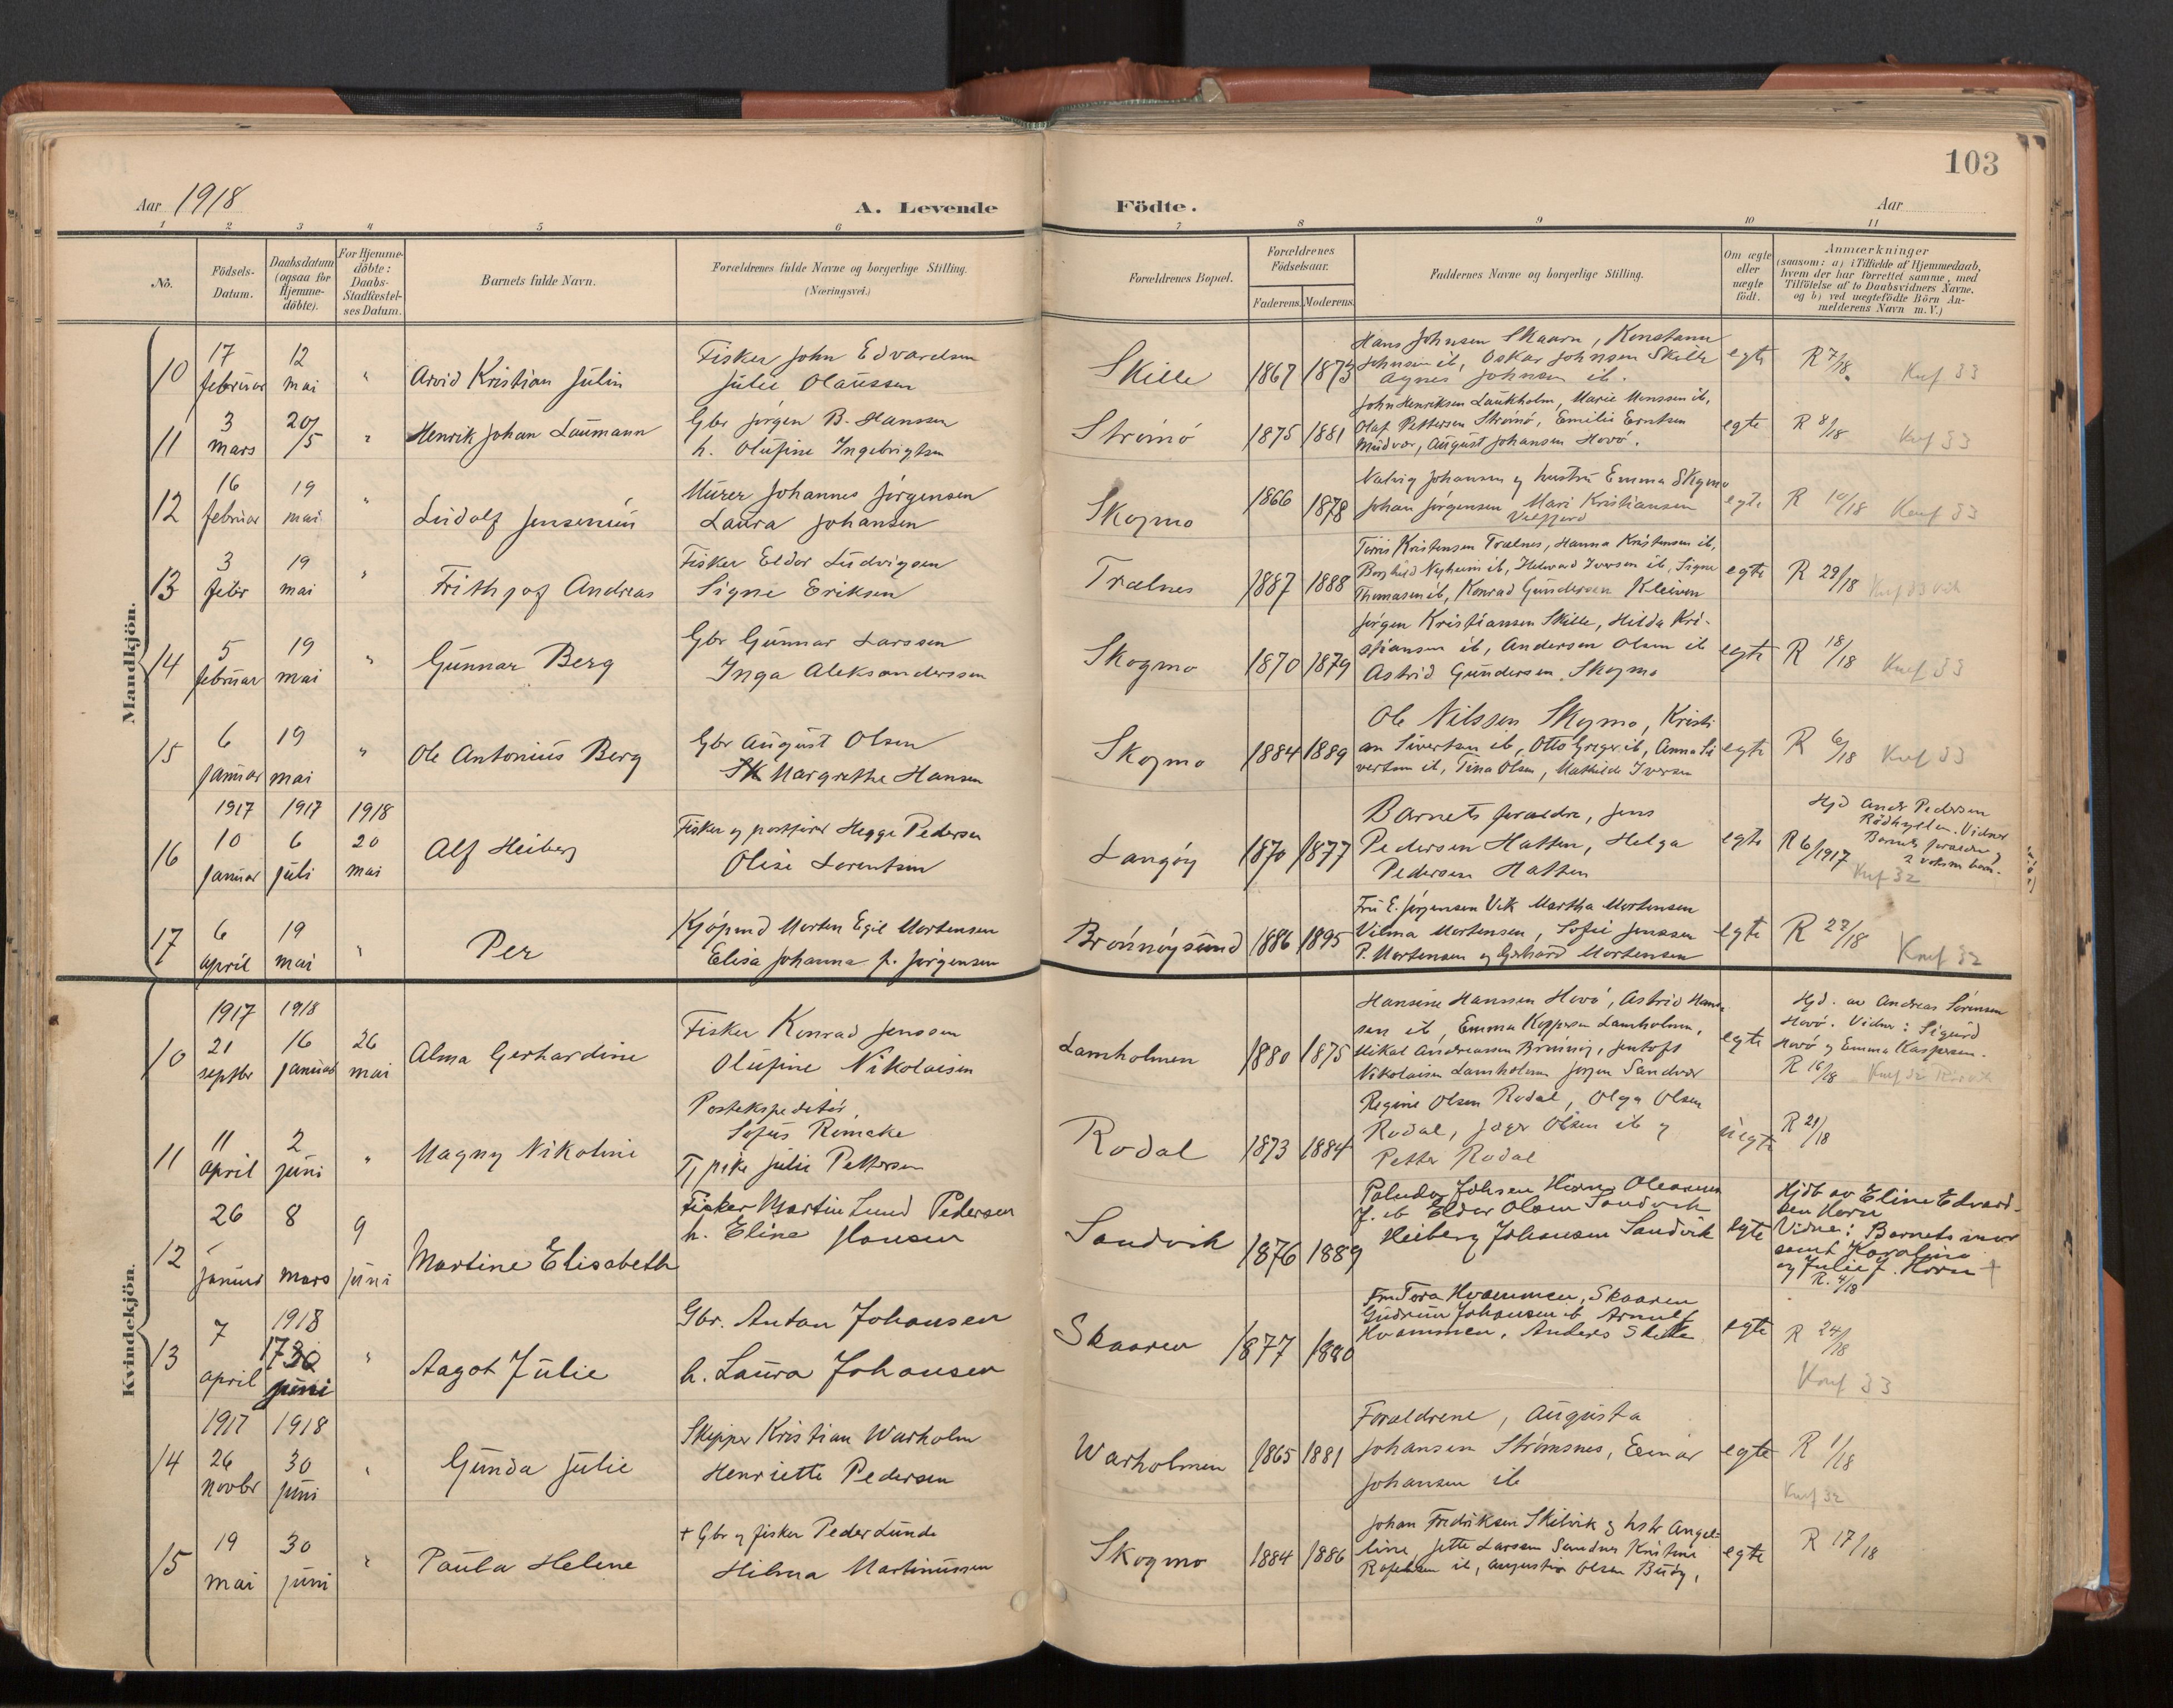 103
Aar 1918
A. Levende
Födte.
Aar
1 2 3 4 5 6 7 8 9 10 11
No.
Födsels-Datum.
Daabsdatum (ogsaa for Hjemme-döbte).
For Hjemme-döbte: Daabs-Stadfæstel-ses Datum.
Barnets fulde Navn.
Forældrenes fulde Navne og borgerlige Stilling.
(Næringsvei.)
Forældrenes Bopæl.
Forældrenes Födselsaar.
Faderens. Moderens.
Faddernes Navne og borgerlige Stilling.
Om ægte eller uægte födt.
Anmærkninger
(saasom: a) i Tilfælde af Hjemmedaab, hvem der har forrettet samme, med Tilföielse af to Daabsvidners Navne, og b) ved uægtefödte Börn An-melderens Navn m. V.)
Mandkjön.
10
17 februar
12 mai
"
Arvid Kristian Julin
Fisker John Edvardsen
Julie Olaussen
Skille
1867 1873
Hans Johnsen Skaarn, Konstanse
Johnsen ib, Oskar Johnsen Skille
Agnes Johnsen ib.
egte
R 7/18. Knf 33
11
3 mars
20/5
"
Henrik Johan Laumann
Gbr Jørgen B. Hanssen
h. Olufine Ingebrigtsen
Strømø
1875 1881
John Henriksen Laukholm, Marie Monssen ib,
Olaf Pettersen Strømø, Emilie Erntsen
Mudvær, August Johansen Hovø.
egte
R 8/18 Knf 33
12
16 februar
19 mai
"
Ludolf Jensenius
Murer Johannes Jørgensen
Laura Johansen
Skogmo
1866 1878
Nalvig Johansen og hustru Emma Skogmo
Johan Jørgensen Mari Kristiansen
Velfjord
egte
R 10/18 Knf 33
13
3 febr
19 mai
"
Frithjof Andreas
Fisker Eldor Ludvigsen
Signe Eriksen
Trælnes
1887 1888
Kristensen Trælnes, Hanna Kristensen ib,
Borghild Nyheim ib, Iversen ib, Signe
Thomasen ib, Konrad Gundersen Kleiven
egte
R 29/18 Knf 33
14
5 februar
19 mai
"
Gunnar Berg
Gbr Gunnar Larssen
Inga Aleksanderssen
Skogmo
1870 1879
Jørgen Kristiansen Skille, Hilda Kri-
stiansen ib, Andersen Olsen ib
Astrid Gundersen Skogmo
egte
R 18/18 Knf 33
15
6 januar
19 mai
"
Ole Antonius Berg
Gbr August Olsen
Margrethe Hansen
Skogmo
1884 1889
Ole Nilssen Skogmo, Kristi
an Sivertsen ib, Otto Greger ib, Anna Si
vertsen ib, Tina Olsen, Mathilde Iversen
egte
R 6/18 Knf 33
16
1917 10 januar
1917 6 juli
1918 20 mai
Alf Heiberg
Fisker og postfører Hegge Pedersen
Olise Lorentsen
Langøy
1870 1877
Barnets foraeldre, Jens
Pedersen Hatten, Helga
Pedersen Hatten
egte
Hjd Andr Pedersen
Rødhyllen. Vidner
Barnets foraeldre og
2 voksne barn.
R 6/1917
Knf 32
17
6 april
19 mai
"
Per
Kjøpmd Morten Egil Mortensen
Elisa Johanna f. Jørgensen
Brønnøysund
1886 1895
Fru E. Jørgensen Vik Martha Mortensen
Vilma Mortensen, Sofie Jenssen
P. Mortensen og Gerhard Mortensen
egte
R 27/18 Knf 32
Kvindekjön.
10
1917 21 septbr
1918 16 januar
26 mai
Alma Gerhardine
Fisker Konrad Jenssen
Olufine Nikolaisen
Lamholmen
1880 1875
Hansine Hanssen Hovø, Astrid Hans-
sen ib, Emma Kaspersen Lamholmen,
Mikal Andreassen Brunvig, Jentoft
Nikolaisen Lamholmen Jørgen Sandvær
egte
Hjd. av Andreas Sørensen
Hovø. Vidner: Sigurd
Hovø og Emma Kaspersen.
R 16/18 Knf 32
11
11 april
2 juni
"
Magny Nikoline
Postekspeditør,
Sofus Remeke
Tj pike Julie Pettersen
Rodal
1873 1884
Regine Olsen Rodal, Olga Olsen
Rodal, Olsen ib og
Petter Rodal
uegte
R 21/18
12
26 januar
8 mars
9 juni
Martine Elisabeth
Fisker Martin Lund Pedersen
h. Eline Hansen
Sandvik
1876 1889
Johsen Horn, Oleanna
J. ib Eldor Olsen Sandvik
Heiberg Johansen Sandvik
egte
Hjdb av Eline Edvard-
sen Horn
Vidner: Barnets mor
samt Karoline
og Julie J. Horn
R. 4/18
13
7 april
1918
30 juni
"
Aagot Julie
Gbr. Anton Johansen
h. Laura Johansen
Skaaren
1877 1880
Fru Tora Kvammen, Skaaren
Gudrun Johansen ib Arnulf
Kvammen, Anders Skille
egte
R 24/18
Knf 33
14
1917 26 novbr
1918 30 juni
"
Gunda Julie
Skipper Kristian Warholm
Henriette Pedersen
Warholmen
1865 1881
Foraeldrene, Augusta
Johansen Strømsnes, Einar
Johansen ib
egte
R 1/18
Knf 32
15
19 mai
30 juni
"
Paula Helene
+ Gbr og fisker Peder Lunde
Hilma Martinussen
Skogmo
1884 1886
Johan Fredriksen Skilvik og hstr Angel-
line, Jette Larssen Sandnes Kristine
ib, Olsen Budg,
egte
R 17/18